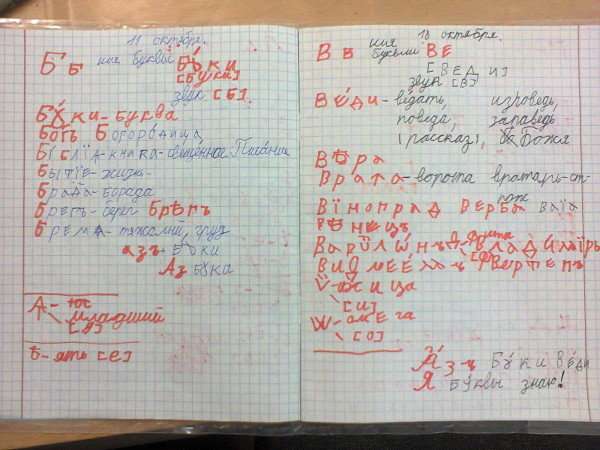 11 октября.
Б б имя буквы БꙊки
[буки]
звук [б].
БꙊки - буква
Богъ Богородица
Библїа - книга - священное Писание
Бытїе - жизнь
Брада - борода
Брегъ - берег
Бремѧ - тяжелый груз
азъ - буки
Аз буки
Ѧ - юс
младший
[я]
Ѣ - ять [е]
18 октября.
В в имя буквы ВЕ
[ВЕДИ]
звук [в]
Вѣди - ведать, исповедь,
поведа, заповедь
(рассказ), Божя
Вѣра
Врата - ворота вратарь-ст
рож
Вїноград верба ваїа
Вѣнецъ
Варѵлонъ Владимїръ
Виѳлеемъ Вертепъ
Ѵ - ижица
[и]
Ѡ - омега
[о]
Азъ буки веди
Я буквы знаю!